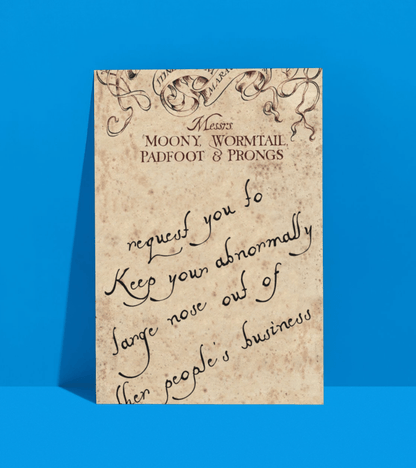 Messrs
MOONY, WORMTAIL,
PADFOOT & PRONGS
request you to
Keep your abnormally
large nose out of
ther people's business